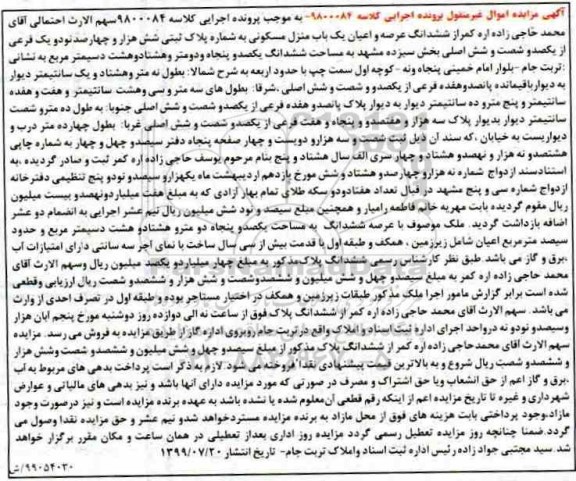 آگهی مزایده اموال غیرمنقول پرونده اجرایی کلاسه ۹۸۰۰۰۸۴- به موجب پرونده اجرایی کلاسه ۹۸۰۰۰۸۴سهم الارث احتمالی آقای
محمد حاجی زاده اره کمراز ششدانگ عرصه و اعیان یک باب منزل مسکونی به شماره پلاک ثبتی شش هزار و چهارصدنودو یک فرعی
از یکصدو شصت و شش اصلی بخش سیزده مشهد به مساحت ششدانگ یکصدو پنجاه ودومتر وهشتادوهشت دسیمتر مربع به نشانی
:تربت جام -بلوار امام خمینی پنجاه ونه -کوچه اول سمت چپ با حدود اربعه به شرح شمالا: بطول نه متر وهشتاد و یک سانتیمتر دیوار
به دیوارباقیمانده پانصدوهفده فرعی از یکصدو و شصت و شش اصلی .شرقا: بطول های سه متر و سی وهشت سانتیمتر و هفت و هفده
سانتیمتر و پنج مترو ده سانتیمتر دیوار به دیوار پلاک پانصدو هفده فرعی از یکصدو شصت و شش اصلی جنوبا: به طول ده مترو شصت
سانتیمتر دیوار بدیوار پلاک سه هزار و هفتصدو و پنجاه و هفت فرعی از یکصدو شصت و شش اصلی غربا: بطول چهارده متر درب و
دیواریست به خیابان ،که سند آن ذیل ثبت شصت و سه هزارو دویست و چهار صفحه پنجاه دفتر سیصدو چهل و چهار به شماره چاپی
هشتصدو نه هزار و نهصدو هشتاد و چهار سری الف سال هشتاد و پنج بنام مرحوم یوسف حاجی زاده اره کمر ثبت و صادر گردیده ،به
استنادسند ازدواج شماره نه هزارو چهارصدو هشتاد و شش مورخ یازدهم اردیبهشت ماه یکهزارو سیصدو نودو پنج تنظیمی دفترخانه
ازدواج شماره سی و پنج مشهد در قبال تعداد هفتادودو سکه طلای تمام بهار آزادی که به مبلغ هفت میلیاردونهصدو بیست میلیون
ریال مقوم گردیده بابت مهریه خانم فاطمه رامیار و همچنین مبلغ سیصد و نود شش میلیون ریال نیم عشر اجرایی به انضمام دو عشر
اضافه بازداشت گردید. ملک موصوف با عرصه ششدانگ به مساحت یکصدو پنجاه دو مترو هشتادو هشت دسیمتر مربع و حدود
سیصد مترمربع اعیان شامل زیرزمین ، همکف و طبقه اول با قدمت بیش از سی سال ساخت با نمای آجر سه سانتی دارای امتیازات آب
،برق و گاز می باشد .طبق نظر کارشناس رسمی ششدانگ پلاک مذکور به مبلغ چهار میلیاردو یکصد میلیون ریال وسهم الارث آقای
محمد حاجی زاده اره کمر به مبلغ سیصدو چهل و شش میلیون و ششصدوشصت و شش هزار و ششصدو شصت ریال ارزیابی وقطعی
شده است برابر گزارش مامور اجرا ملک مذکور طبقات زیرزمین و همکف در اختیار مستاجر بوده و طبقه اول در تصرف احدی از وراث
می باشد . سهم الارث آقای محمد حاجی زاده اره کمر از ششدانگ پلاک فوق از ساعت نه الی دوازده روز دوشنبه مورخ پنجم آبان هزار
وسیصدو نودو نه درواحد اجرای اداره ثبت اسناد و املاک واقع در تربت جام روبروی اداره گاز از طریق مزایده به فروش می رسد. مزایده
سهم الارث آقای محمدحاجی زاده اره کمر از ششدانگ پلاک مذکور از مبلغ سیصدو چهل و شش میلیون و ششصدو شصت وشش هزار
و ششصدو شصت ریال شروع و به بالاترین قیمت پیشنهادی نقدا فروخته می شود. لازم به ذکر است پرداخت بدهی های مربوط به آب
،برق و گاز اعم از حق انشعاب ویا حق اشتراک و مصرف در صورتی که مورد مزایده دارای آنها باشد و نیز بدهی های مالیاتی و عوارض
شهرداری و غیره تا تاریخ مزایده اعم از اینکه رقم قطعی آن معلوم شده یا نشده باشد به عهده برنده مزایده است و نیز درصورت وجود
مازاد،وجود پرداختی بابت هزینه های فوق از محل مازاد به برنده مزایده مسترد خواهد شدو نیم عشر و حق مزایده نقدا وصول می
گردد.ضمنا چنانچه روز مزایده تعطیل رسمی گردد مزایده روز اداری بعداز تعطیلی در همان ساعت و مکان مقرر برگزار خواهد
شد. سید مجتبی جواد زاده رئیس اداره ثبت اسناد واملاک تربت جام- تاریخ انتشار ۱۳۹۹/۰۷/۲۰
۹۹۰۵۴۰۳۰/ش